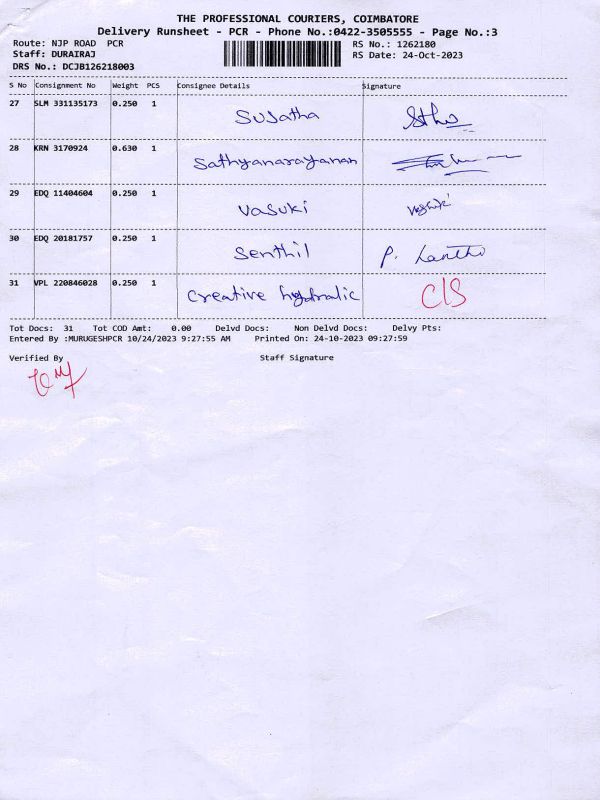 THE PROFESSIONAL COURIERS, COIMBATORE
Delivery Runsheet - PCR - Phone No.:0422-3505555 - Page No.:3
Route: NJP ROAD PCR RS No.: 1262180
Staff: DURAIRAJ RS Date: 24-Oct-2023
DRS No.: DCJB126218003
S No Consignment No Weight PCS Consignee Details Signature
27 SLM 331135173 0.250 1 Sujatha
28 KRN 3170924 0.630 1 Sathyanarayanan
29 EDQ 11404604 0.250 1 Vasuki
30 EDQ 20181757 0.250 1 Senthil P.
31 VPL 220846028 0.250 1 Creative hydralic C/S
Tot Docs: 31 Tot COD Amt: 0.00 Delvd Docs: Non Delvd Docs: Delvy Pts:
Entered By :MURUGESHPCR 10/24/2023 9:27:55 AM Printed On: 24-10-2023 09:27:59
Verified By Staff Signature